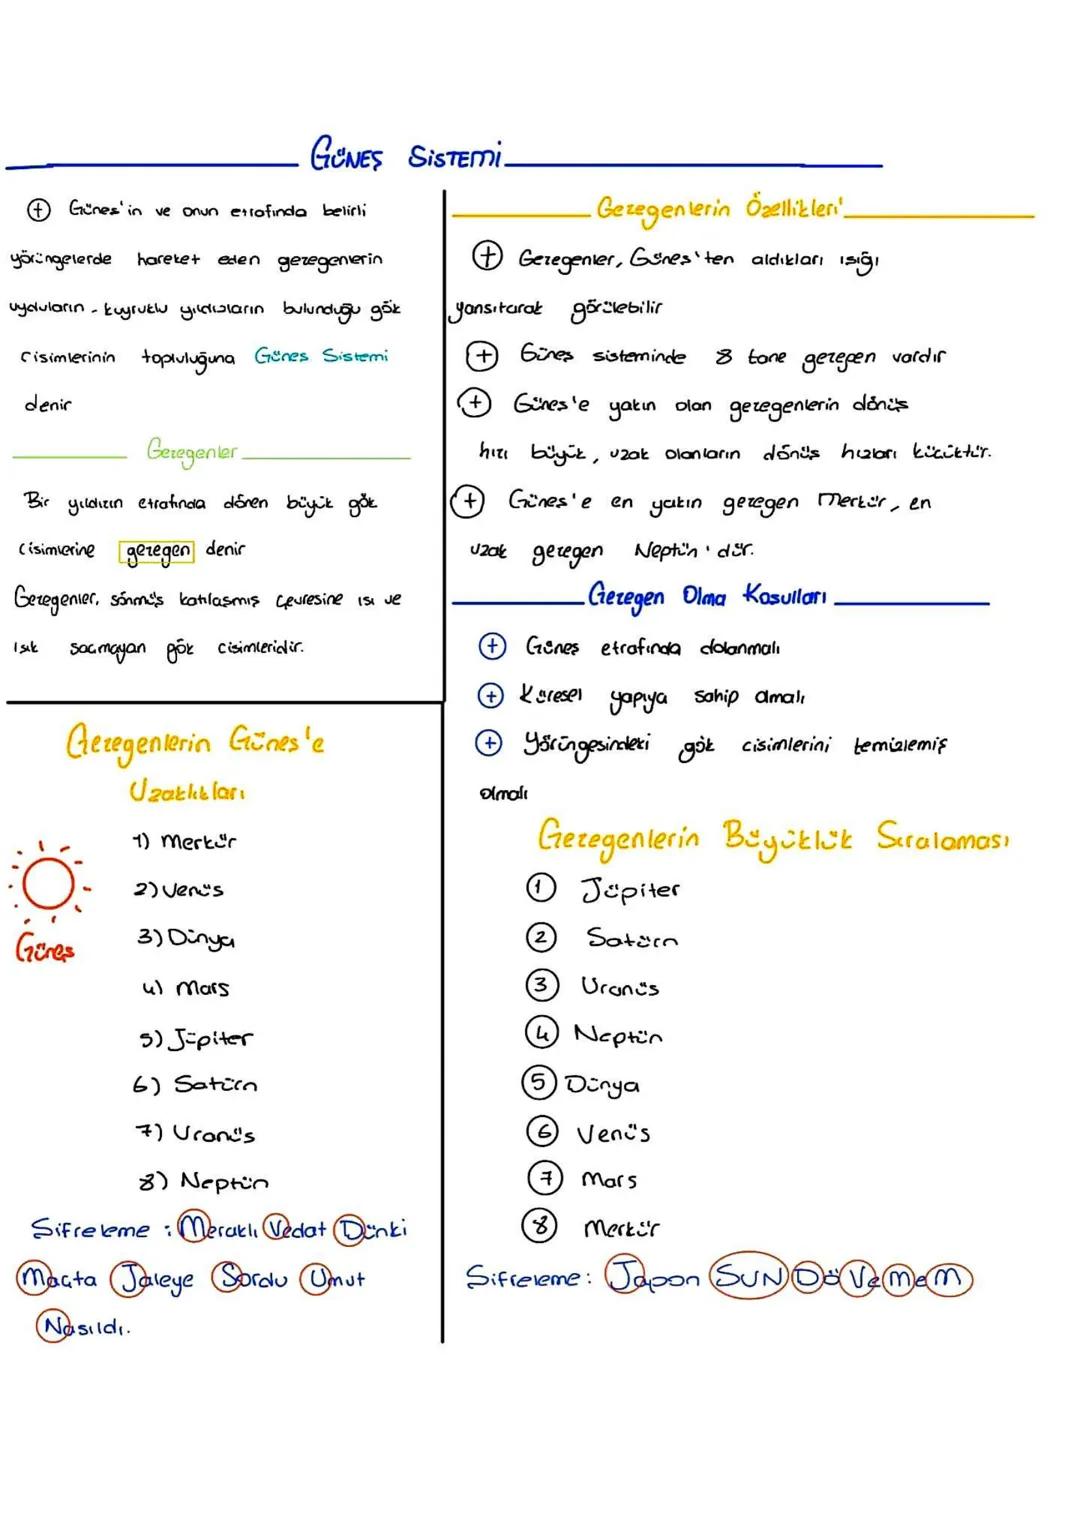 GÜNEŞ SİSTEMİ
+ Güneş'in ve onun etrafında belirli
yörüngelerde hareket eden gezegenlerin
uyduların - kuyruklu yıldızların bulunduğu gök
cisimlerinin topluluğuna Güneş Sistemi
denir
Gezegenler
Bir yıldızın etrafında dönen büyük gök
cisimlerine gezegen denir
Gezegenler, sönmüş katılaşmış çevresine ısı ve
ısık saçmayan gök cisimleridir.
Gezegenlerin Özellikleri
+ Gezegenler, Güneş'ten aldıkları ısığı
yansıtarak görülebilir
+ Güneş sisteminde 8 tane gezegen vardır
+ Güneş'e yakın olan gezegenlerin dönüş
hızı büyük, uzak olanların dönüş hızları küçüktür.
+ Güneş'e en yakın gezegen Merkür, en
uzak gezegen Neptün'dür.
Gezegen Olma Kosulları
+ Güneş etrafında dolanmalı
+ Küresel yapıya sahip olmalı
+ Yörüngesindeki gök cisimlerini temizlemiş
olmalı
Gezegenlerin Güneş'e
Uzaklıkları
Güneş
1) Merkür
2) Venüs
3) Dünya
4) Mars
5) Jüpiter
6) Satürn
7) Uranüs
8) Neptün
Sifreleme : Meraklı Vedat Dünki
Maçta Jaleye Sordu Umut
Nasıldı.
Gezegenlerin Büyüklük Sıralaması
1 Jüpiter
2 Satürn
3 Uranüs
4 Neptün
5 Dünya
6 Venüs
7 Mars
8 Merkür
Sifreleme: Japon SUN DöVeMeM